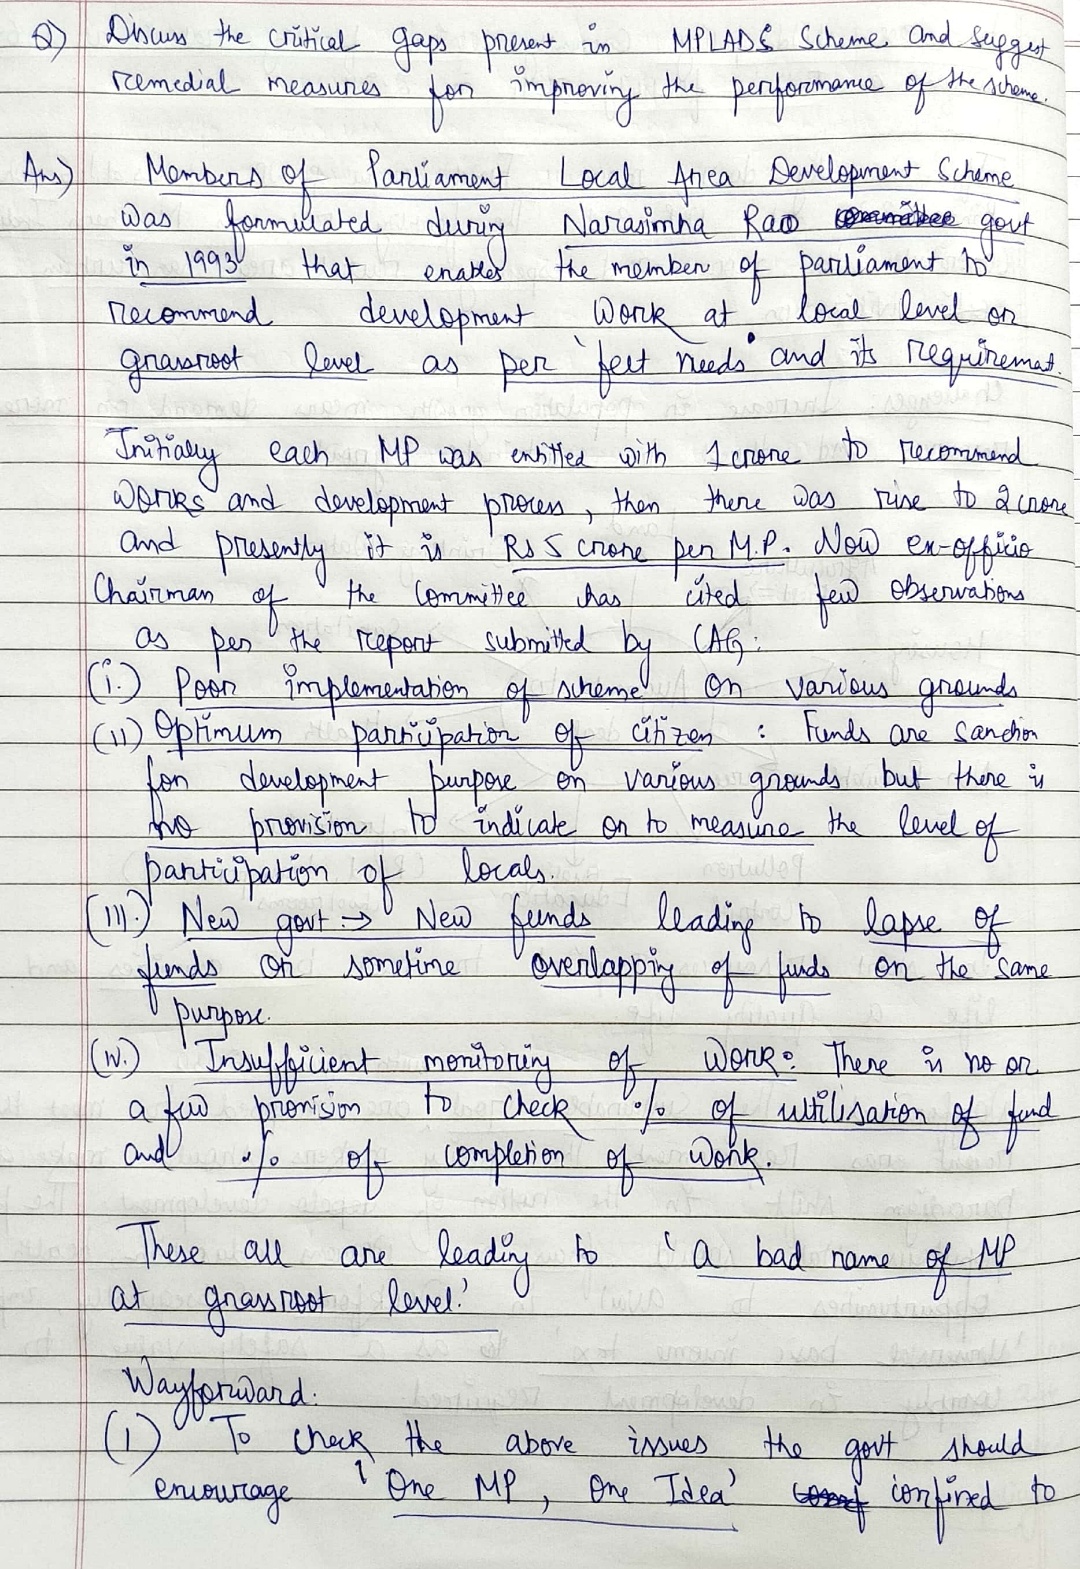 Q) Discuss the critical gaps present in MPLADS Scheme and suggest
remedial measures for improving the performance of the scheme.
Ans) Members of Parliament Local Area Development Scheme
was formulated during Narasimha Rao govt
in 1993 that enables the member of parliament to
recommend development work at local level or
grassroot level as per 'felt needs' and its requiremet.
Initially each MP was entitled with 1 crore to recommend
works and development process, then there was rise to 2 crore
and presently it is Rs 5 crore per M.P. Now ex-officio
Chairman of the Committee has cited few observations
as per the report submitted by CAG:
(i.) Poor implementation of scheme on various grounds
(ii) Optimum participation of citizen : Funds are sanction
for development purpose on various grounds but there is
no provision to indicate or to measure the level of
participation of locals.
(iii.) New govt → New funds leading to lapse of
funds or sometime overlapping of funds on the same
purpose.
(iv.) Insufficient monitoring of work: There is no or
a few provision to check % of utilisation of fund
and % of completion of work.
These all are leading to 'a bad name of MP
at grassroot level.'
Wayforward:
(i) To check the above issues the govt should
encourage 'One MP, One Idea' confined to